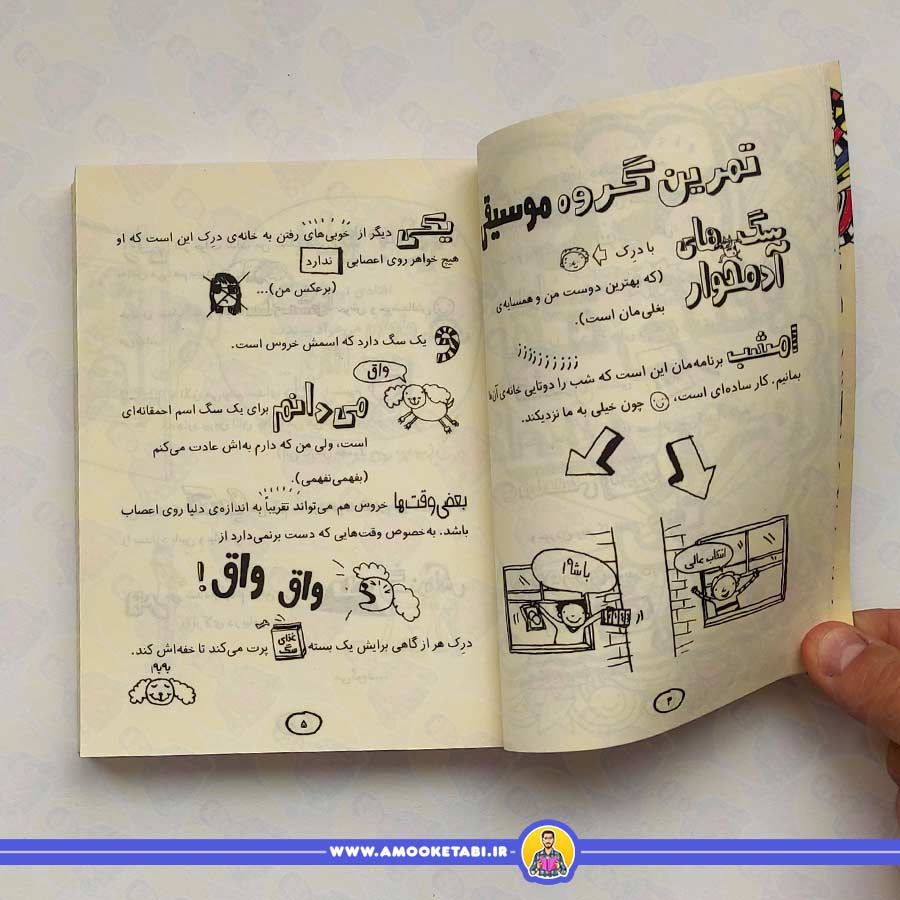 تمرین گروه موسیقی
سگ‌های آدمخوار
با درک
(که بهترین دوست من و همسایه‌ی
بغلی‌مان است).
zzzzzzzzz
امشب برنامه‌مان این است که شب را دوتایی خانه‌ی آن‌ها
بمانیم. کار ساده‌ای است، چون خیلی به ما نزدیکند.
باشه!
انتخاب عالی
۴
یکی دیگر از خوبی‌های رفتن به خانه‌ی درک این است که او
هیچ خواهر روی اعصابی ندارد
(برعکس من)...
و یک سگ دارد که اسمش خروس است.
واق
می‌دانم برای یک سگ اسم احمقانه‌ای
است، ولی من که دارم به‌اش عادت می‌کنم
(بفهمی نفهمی).
بعضی وقت‌ها خروس هم می‌تواند تقریباً به اندازه‌ی دلیا روی اعصاب
باشد. به‌خصوص وقت‌هایی که دست برنمی‌دارد از
واق واق!
درک هر از گاهی برایش یک بسته غذای سگ پرت می‌کند تا خفه‌اش کند.
به به!
۵
WWW.AMOOKETABI.IR